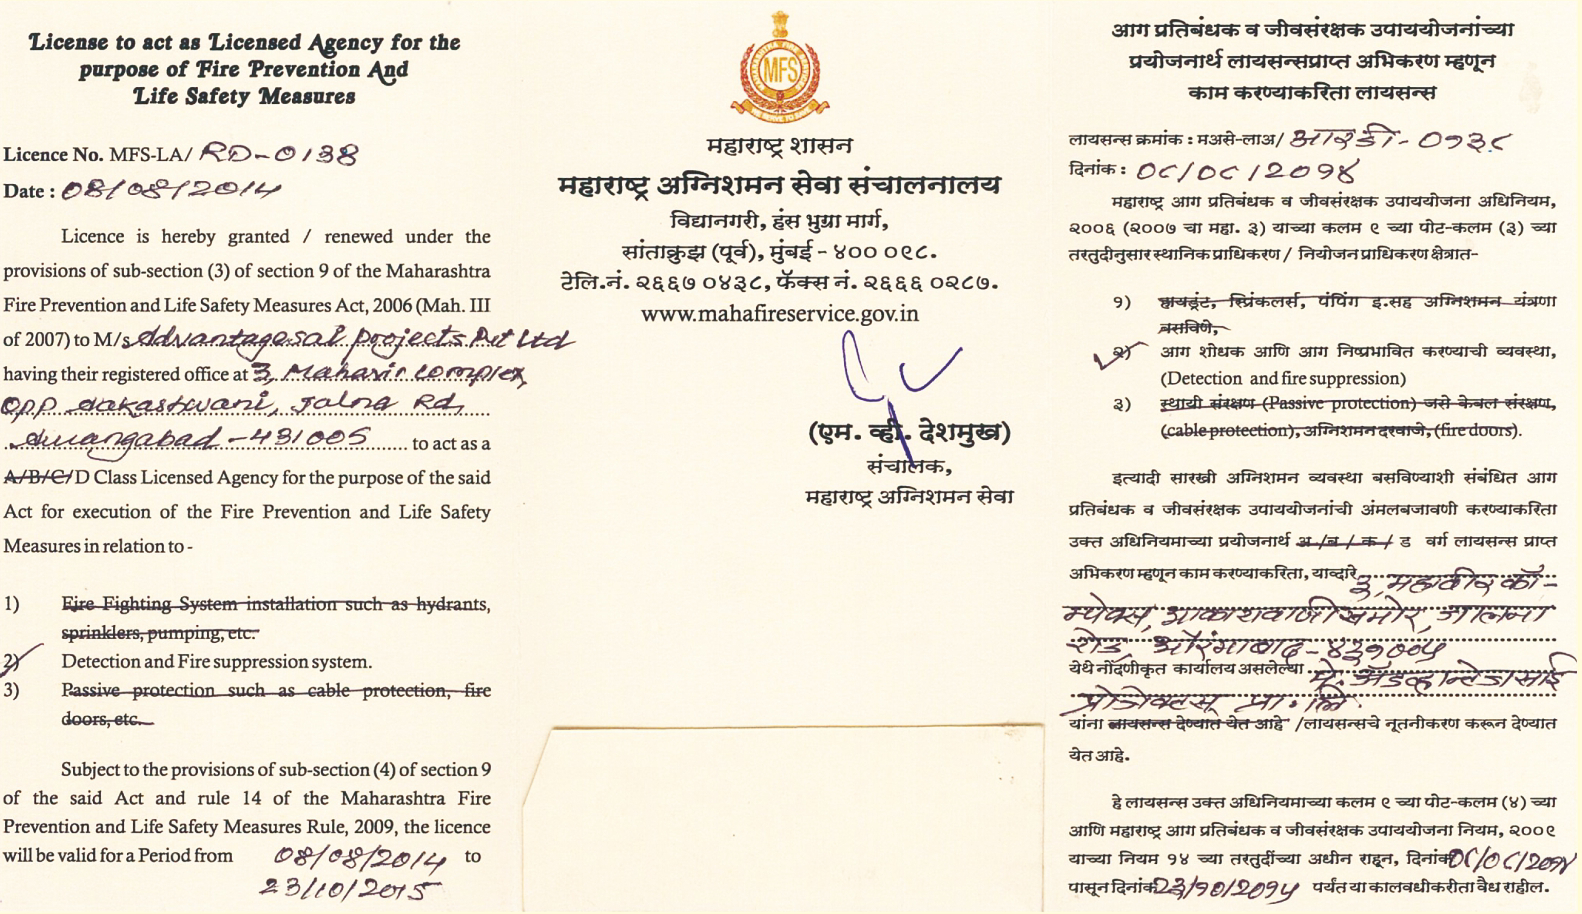 License to act as Licensed Agency for the
purpose of Fire Prevention And
Life Safety Measures
Licence No. MFS-LA/ RD-0138
Date : 08/08/2014
Licence is hereby granted / renewed under the
provisions of sub-section (3) of section 9 of the Maharashtra
Fire Prevention and Life Safety Measures Act, 2006 (Mah. III
of 2007) to M/s Advantagesai projects Pvt Ltd
having their registered office at 3, Mahavir complex,
Opp Aakashwani, Jalna Rd,
Aurangabad - 431005 to act as a
A/B/C/D Class Licensed Agency for the purpose of the said
Act for execution of the Fire Prevention and Life Safety
Measures in relation to -
1) Fire Fighting System installation such as hydrants,
sprinklers, pumping, etc.
2) Detection and Fire suppression system.
3) Passive protection such as cable protection, fire
doors, etc.
Subject to the provisions of sub-section (4) of section 9
of the said Act and rule 14 of the Maharashtra Fire
Prevention and Life Safety Measures Rule, 2009, the licence
will be valid for a Period from 08/08/2014 to
23/10/2015
MFS
महाराष्ट्र शासन
महाराष्ट्र अग्निशमन सेवा संचालनालय
विद्यानगरी, हंस भुग्रा मार्ग,
सांताक्रुझ (पूर्व), मुंबई - ४०० ०९८.
टेलि.नं. २६६७ ०४३८, फॅक्स नं. २६६६ ०२८७.
www.mahafireservice.gov.in
(एम. व्ही. देशमुख)
संचालक,
महाराष्ट्र अग्निशमन सेवा
आग प्रतिबंधक व जीवसंरक्षक उपाययोजनांच्या
प्रयोजनार्थ लायसन्सप्राप्त अभिकरण म्हणून
काम करण्याकरिता लायसन्स
लायसन्स क्रमांक : मअसे-लाअ/ आरडी - ०१३८
दिनांक : ०८/०८/२०१४
महाराष्ट्र आग प्रतिबंधक व जीवसंरक्षक उपाययोजना अधिनियम,
२००६ (२००७ चा महा. ३) याच्या कलम ९ च्या पोट-कलम (३) च्या
तरतुदीनुसार स्थानिक प्राधिकरण / नियोजन प्राधिकरण क्षेत्रात-
१) हायड्रंट, स्प्रिंकलर्स, पंपिंग इ.सह अग्निशमन यंत्रणा
बसविणे,
२) आग शोधक आणि आग निष्प्रभावित करण्याची व्यवस्था,
(Detection and fire suppression)
३) स्थायी संरक्षण (Passive protection) जसे केबल संरक्षण,
(cable protection), अग्निशमन दरवाजे, (fire doors).
इत्यादी सारखी अग्निशमन व्यवस्था बसविण्याशी संबंधित आग
प्रतिबंधक व जीवसंरक्षक उपाययोजनांची अंमलबजावणी करण्याकरिता
उक्त अधिनियमाच्या प्रयोजनार्थ अ / ब / क / ड वर्ग लायसन्स प्राप्त
अभिकरण म्हणून काम करण्याकरिता, याव्दारे ३, महावीर कॉ-
म्प्लेक्स, आकाशवाणी समोर, जालना
रोड, औरंगाबाद - ४३१००५
येथे नोंदणीकृत कार्यालय असलेल्या मे. ॲडव्हान्टेजसाई
प्रोजेक्टस् प्रा. लि.
यांना लायसन्स देण्यात येत आहे /लायसन्सचे नूतनीकरण करून देण्यात
येत आहे.
हे लायसन्स उक्त अधिनियमाच्या कलम ९ च्या पोट-कलम (४) च्या
आणि महाराष्ट्र आग प्रतिबंधक व जीवसंरक्षक उपाययोजना नियम, २००९
याच्या नियम १४ च्या तरतुदींच्या अधीन राहून, दिनांक ०८/०८/२०१४
पासून दिनांक २३/१०/२०१५ पर्यंत या कालवधीकरीता वैध राहील.